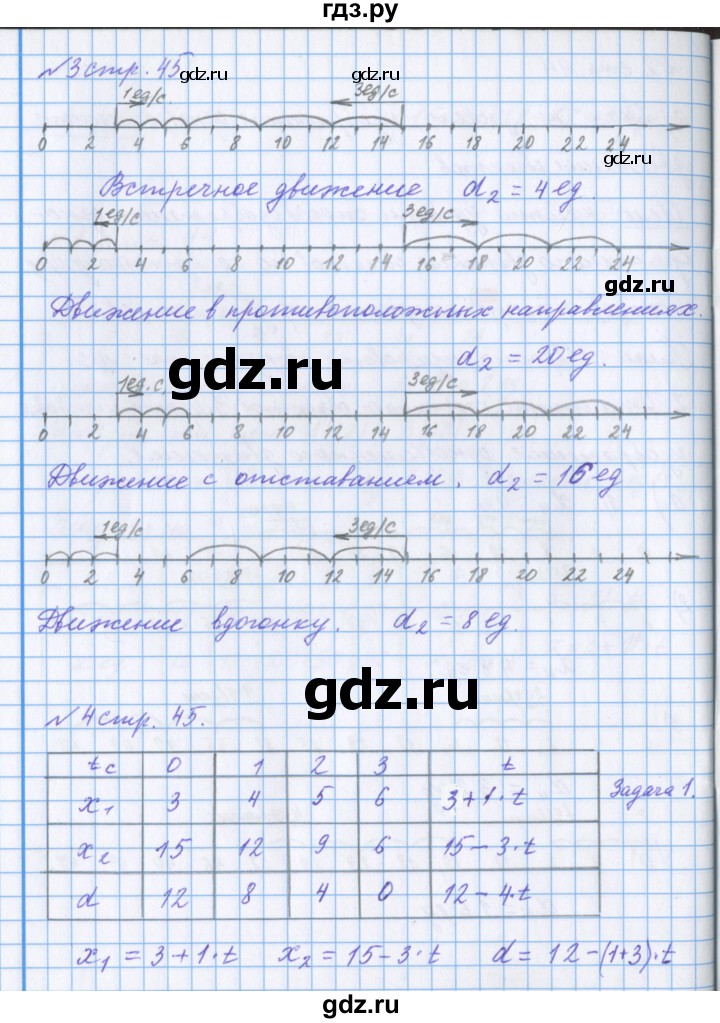 гдз.ру
№3 стр. 45
gdz.ru gdz.ru
1ед/с 3ед/с
0 2 4 6 8 10 12 14 16 18 20 22 24
gdz.ru
Встречное движение d₂ = 4 ед.
1ед/с 3ед/с
0 2 4 6 8 10 12 14 16 18 20 22 24
gdz.ru
Движение в противоположных направлениях.
d₂ = 20 ед.
gdz.ru
1ед.с 3ед/с
0 2 4 6 8 10 12 14 16 18 20 22 24
Движение с отставанием. d₂ = 16 ед
1ед/с 3ед/с
0 2 4 6 8 10 12 14 16 18 20 22 24
Движение вдогонку. d₂ = 8 ед.
gdz.ru
№4 стр. 45.
t c 0 1 2 3 t
x₁ 3 4 5 6 3+1·t Задача 1.
x₂ 15 12 9 6 15-3·t
d 12 8 4 0 12-4·t
x₁ = 3+1·t x₂ = 15-3·t d = 12-(1+3)·t
gdz.ru